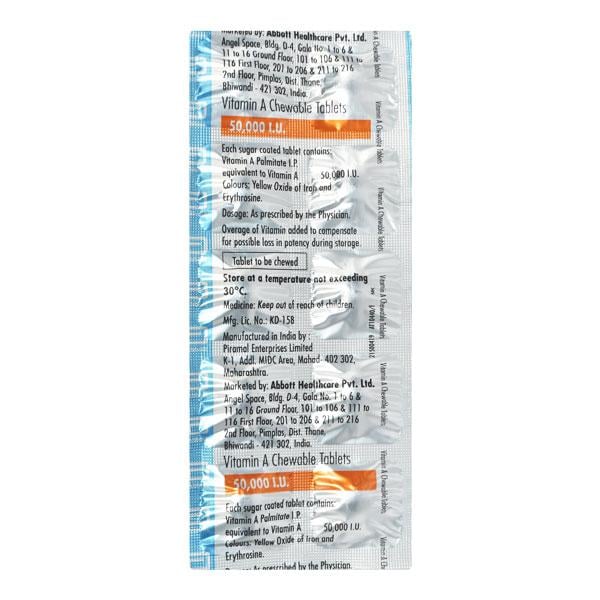 Marketed by: Abbott Healthcare Pvt. Ltd.
Angel Space, Bldg. D-4, Gala No. 1 to 6 &
11 to 16 Ground Floor, 101 to 106 & 111 to
116 First Floor, 201 to 206 & 211 to 216
2nd Floor, Pimplas, Dist. Thane,
Bhiwandi - 421 302, India.
Vitamin A Chewable Tablets
50,000 I.U.
Each sugar coated tablet contains:
Vitamin A Palmitate I.P.
equivalent to Vitamin A 50,000 I.U.
Colours: Yellow Oxide of Iron and
Erythrosine.
Dosage: As prescribed by the Physician.
Overage of Vitamin added to compensate
for possible loss in potency during storage.
Tablet to be chewed
Store at a temperature not exceeding
30°C.
Medicine: Keep out of reach of children.
Mfg. Lic. No.: KD-158
Manufactured in India by :
Piramal Enterprises Limited
K-1, Addl. MIDC Area, Mahad- 402 302,
Maharashtra.
Marketed by: Abbott Healthcare Pvt. Ltd.
Angel Space, Bldg. D-4, Gala No. 1 to 6 &
11 to 16 Ground Floor, 101 to 106 & 111 to
116 First Floor, 201 to 206 & 211 to 216
2nd Floor, Pimplas, Dist. Thane,
Bhiwandi - 421 302, India.
Vitamin A Chewable Tablets
50,000 I.U.
Each sugar coated tablet contains:
Vitamin A Palmitate I.P.
equivalent to Vitamin A 50,000 I.U.
Colours: Yellow Oxide of Iron and
Erythrosine.
As prescribed by the Physician.
A Chewable Tablets
Vitamin A Chewable Tablets
Vitamin A Chewable Tablets
Vitamin A Chewable Tablets
Vitamin A Chewable Tablets
Vitamin A Chewable Tablets